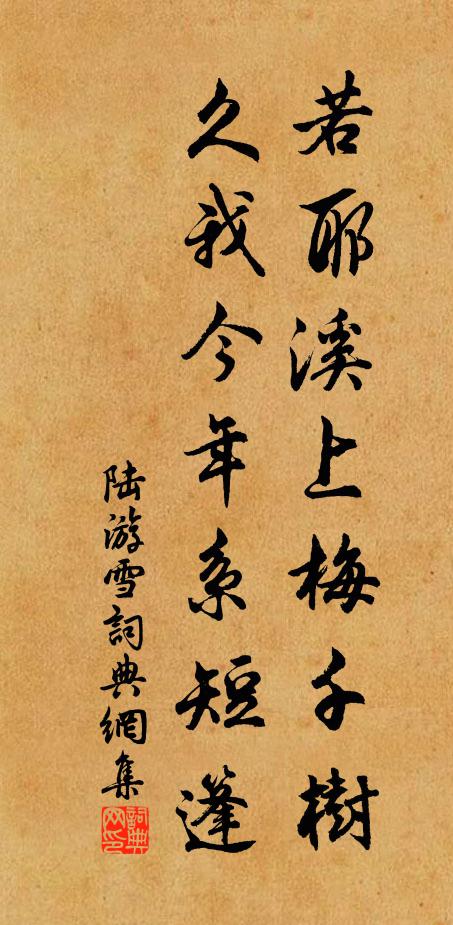 若耶溪上梅千樹
久我今年系短蓬
陆游雪詞典網集
詞典网印